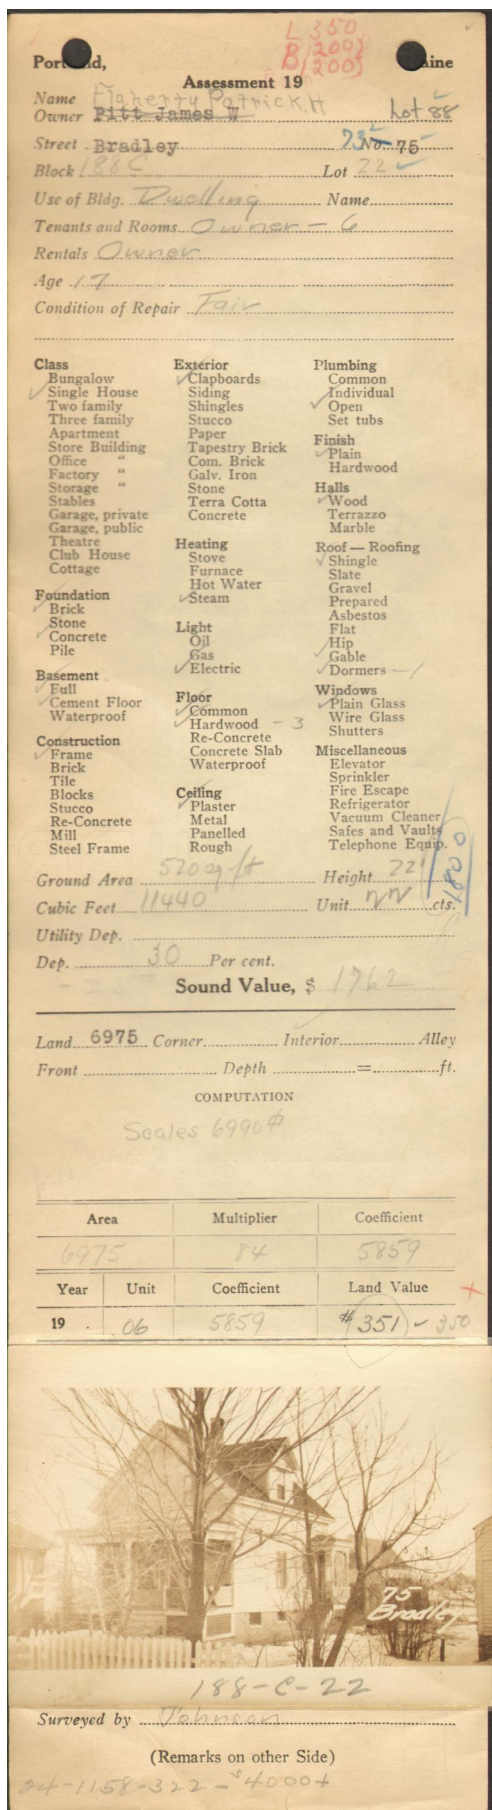 L 350
B(200)
(200)
Portland, Maine
Assessment 19
Name Flaherty Patrick H
Owner Pitt James W. Lot 88
Street Bradley 73 No 75
Block 188C Lot 22
Use of Bldg. Dwelling Name
Tenants and Rooms Owner - 6
Rentals Owner
Age 17
Condition of Repair Fair
Class
Bungalow
Single House
Two family
Three family
Apartment
Store Building
Office "
Factory "
Storage "
Stables
Garage, private
Garage, public
Theatre
Club House
Cottage
Foundation
Brick
Stone
Concrete
Pile
Basement
Full
Cement Floor
Waterproof
Construction
Frame
Brick
Tile
Blocks
Stucco
Re-Concrete
Mill
Steel Frame
Exterior
Clapboards
Siding
Shingles
Stucco
Paper
Tapestry Brick
Com. Brick
Galv. Iron
Stone
Terra Cotta
Concrete
Heating
Stove
Furnace
Hot Water
Steam
Light
Oil
Gas
Electric
Floor
Common
Hardwood - 3
Re-Concrete
Concrete Slab
Waterproof
Ceiling
Plaster
Metal
Panelled
Rough
Plumbing
Common
Individual
Open
Set tubs
Finish
Plain
Hardwood
Halls
Wood
Terrazzo
Marble
Roof — Roofing
Shingle
Slate
Gravel
Prepared
Asbestos
Flat
Hip
Gable
Dormers - 1
Windows
Plain Glass
Wire Glass
Shutters
Miscellaneous
Elevator
Sprinkler
Fire Escape
Refrigerator
Vacuum Cleaner
Safes and Vaults
Telephone Equip.
1800
Ground Area 520 sq ft Height 22'
Cubic Feet 11440 Unit 22 cts.
Utility Dep.
Dep. 30 Per cent.
Sound Value, $ 1762
Land 6975 Corner Interior Alley
Front Depth = ft.
COMPUTATION
Scales 6990
Area Multiplier Coefficient
6975 84 5859
Year Unit Coefficient Land Value
19 . 06 5859 $351 350
75
Bradley
188-C-22
Surveyed by Johnson
(Remarks on other Side)
24-1158-322-$4000+